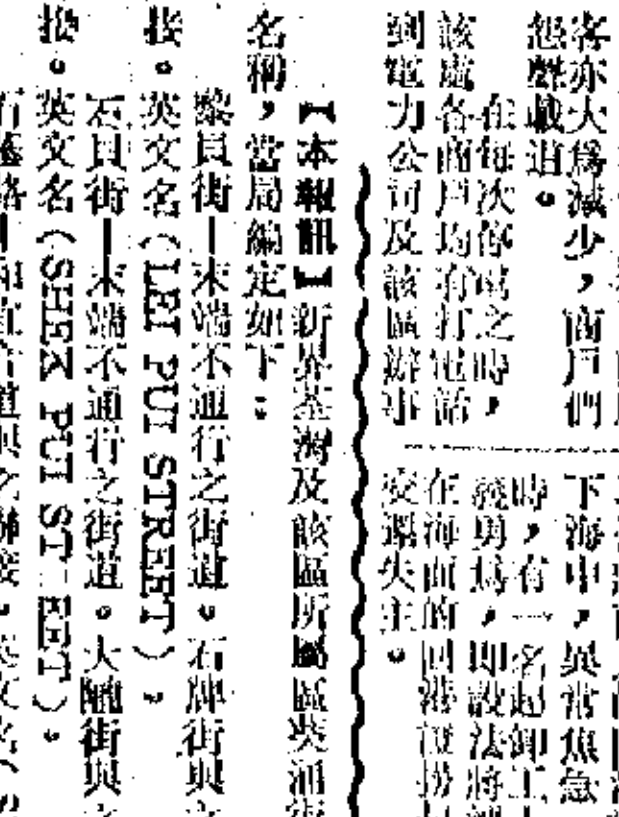 客亦大為減少，商戶們
怨聲載道。
在每次停電之時，
該處各商戶均有打電話
到電力公司及該區辦事
下海中，異常焦急
時，有一名起卸工
義勇為，即設法將
在海面的回港證撈
交還失主。
【本報訊】新界荃灣及該區所屬區葵涌街
名稱，當局編定如下：
黎貝街—末端不通行之街道。石牌街與之
接。英文名（LEI PUI STREET）。
石貝街—末端不通行之街道。大隴街與之
接。英文名（SHEK PUI ST EET）。